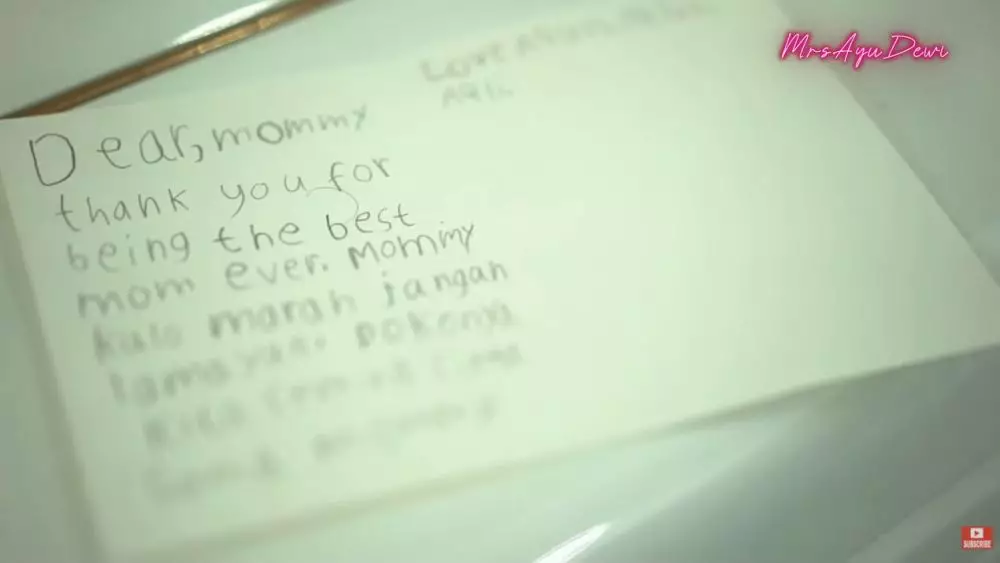 MrsAyuDewi
Love
Dear, mommy
thank you for
being the best
mom ever. Mommy
kalo marah jangan
lama yaa. pokonya
kita
SUBSCRIBE